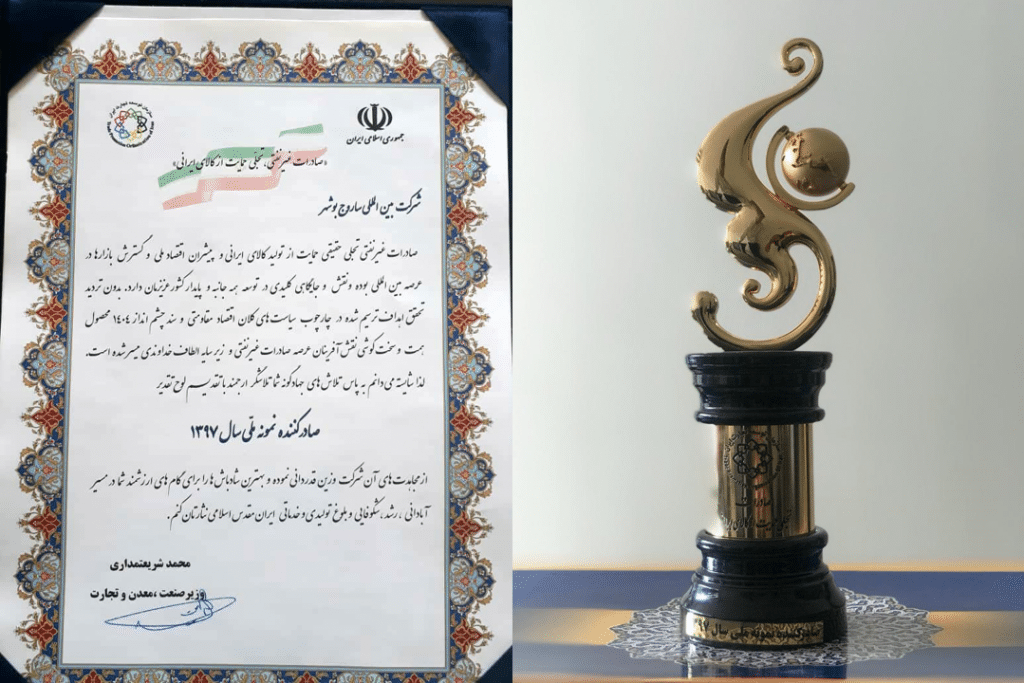 جمهوری اسلامی ایران
«صادرات غیرنفتی، تجلی حمایت از کالای ایرانی»
شرکت بین المللی ساروج بوشهر
صادرات غیرنفتی تجلی حقیقی حمایت از تولید کالای ایرانی و پیشران اقتصاد ملی و گسترش بازارها در
عرصه بین المللی بوده ونقش و جایگاهی کلیدی در توسعه همه جانبه و پایدار کشور عزیزمان دارد، بدون تردید
تحقق اهداف ترسیم شده در چارچوب سیاست‌های کلان اقتصاد مقاومتی و سند چشم انداز ۱۴۰۴ محصول
همت و سخت کوشی نقش آفرینان عرصه صادرات غیرنفتی و زیر سایه الطاف خداوندی میسر شده است.
لذا شایسته می‌دانم به پاس تلاش‌های جهادگونه شما تلاشگر ارجمند با تقدیم لوح تقدیر
صادرکننده نمونه ملی سال ۱۳۹۷
از مجاهدت‌های آن شرکت وزین قدردانی نموده و بهترین شادباش‌ها را برای گام های ارزشمند شما در مسیر
آبادانی ، رشد، شکوفایی و بلوغ تولیدی و خدماتی ایران مقدس اسلامی نثارتان کنم.
محمد شریعتمداری
وزیر صنعت ،معدن و تجارت
صادرات
صادرکننده نمونه ملی سال ۹۷